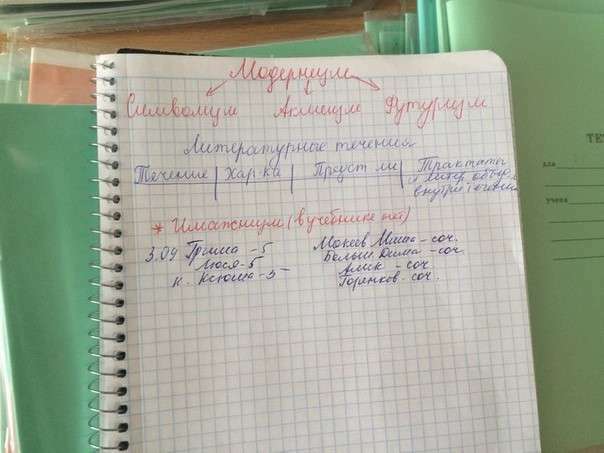 Модернизм
Символизм Акмеизм Футуризм
Литературные течения
Течение | Хар-ка | Предст-ли | Трактаты
и литер. объед.
внутри течения
* Имажинизм (в учебнике нет)
3.09 Гриша - 5 Мокеев Миша - соч.
Люся - 5 Больш. Дима - соч
К. Ксюша - 5 - Алик - соч.
Горянков - соч.
ТЕ
для
учени